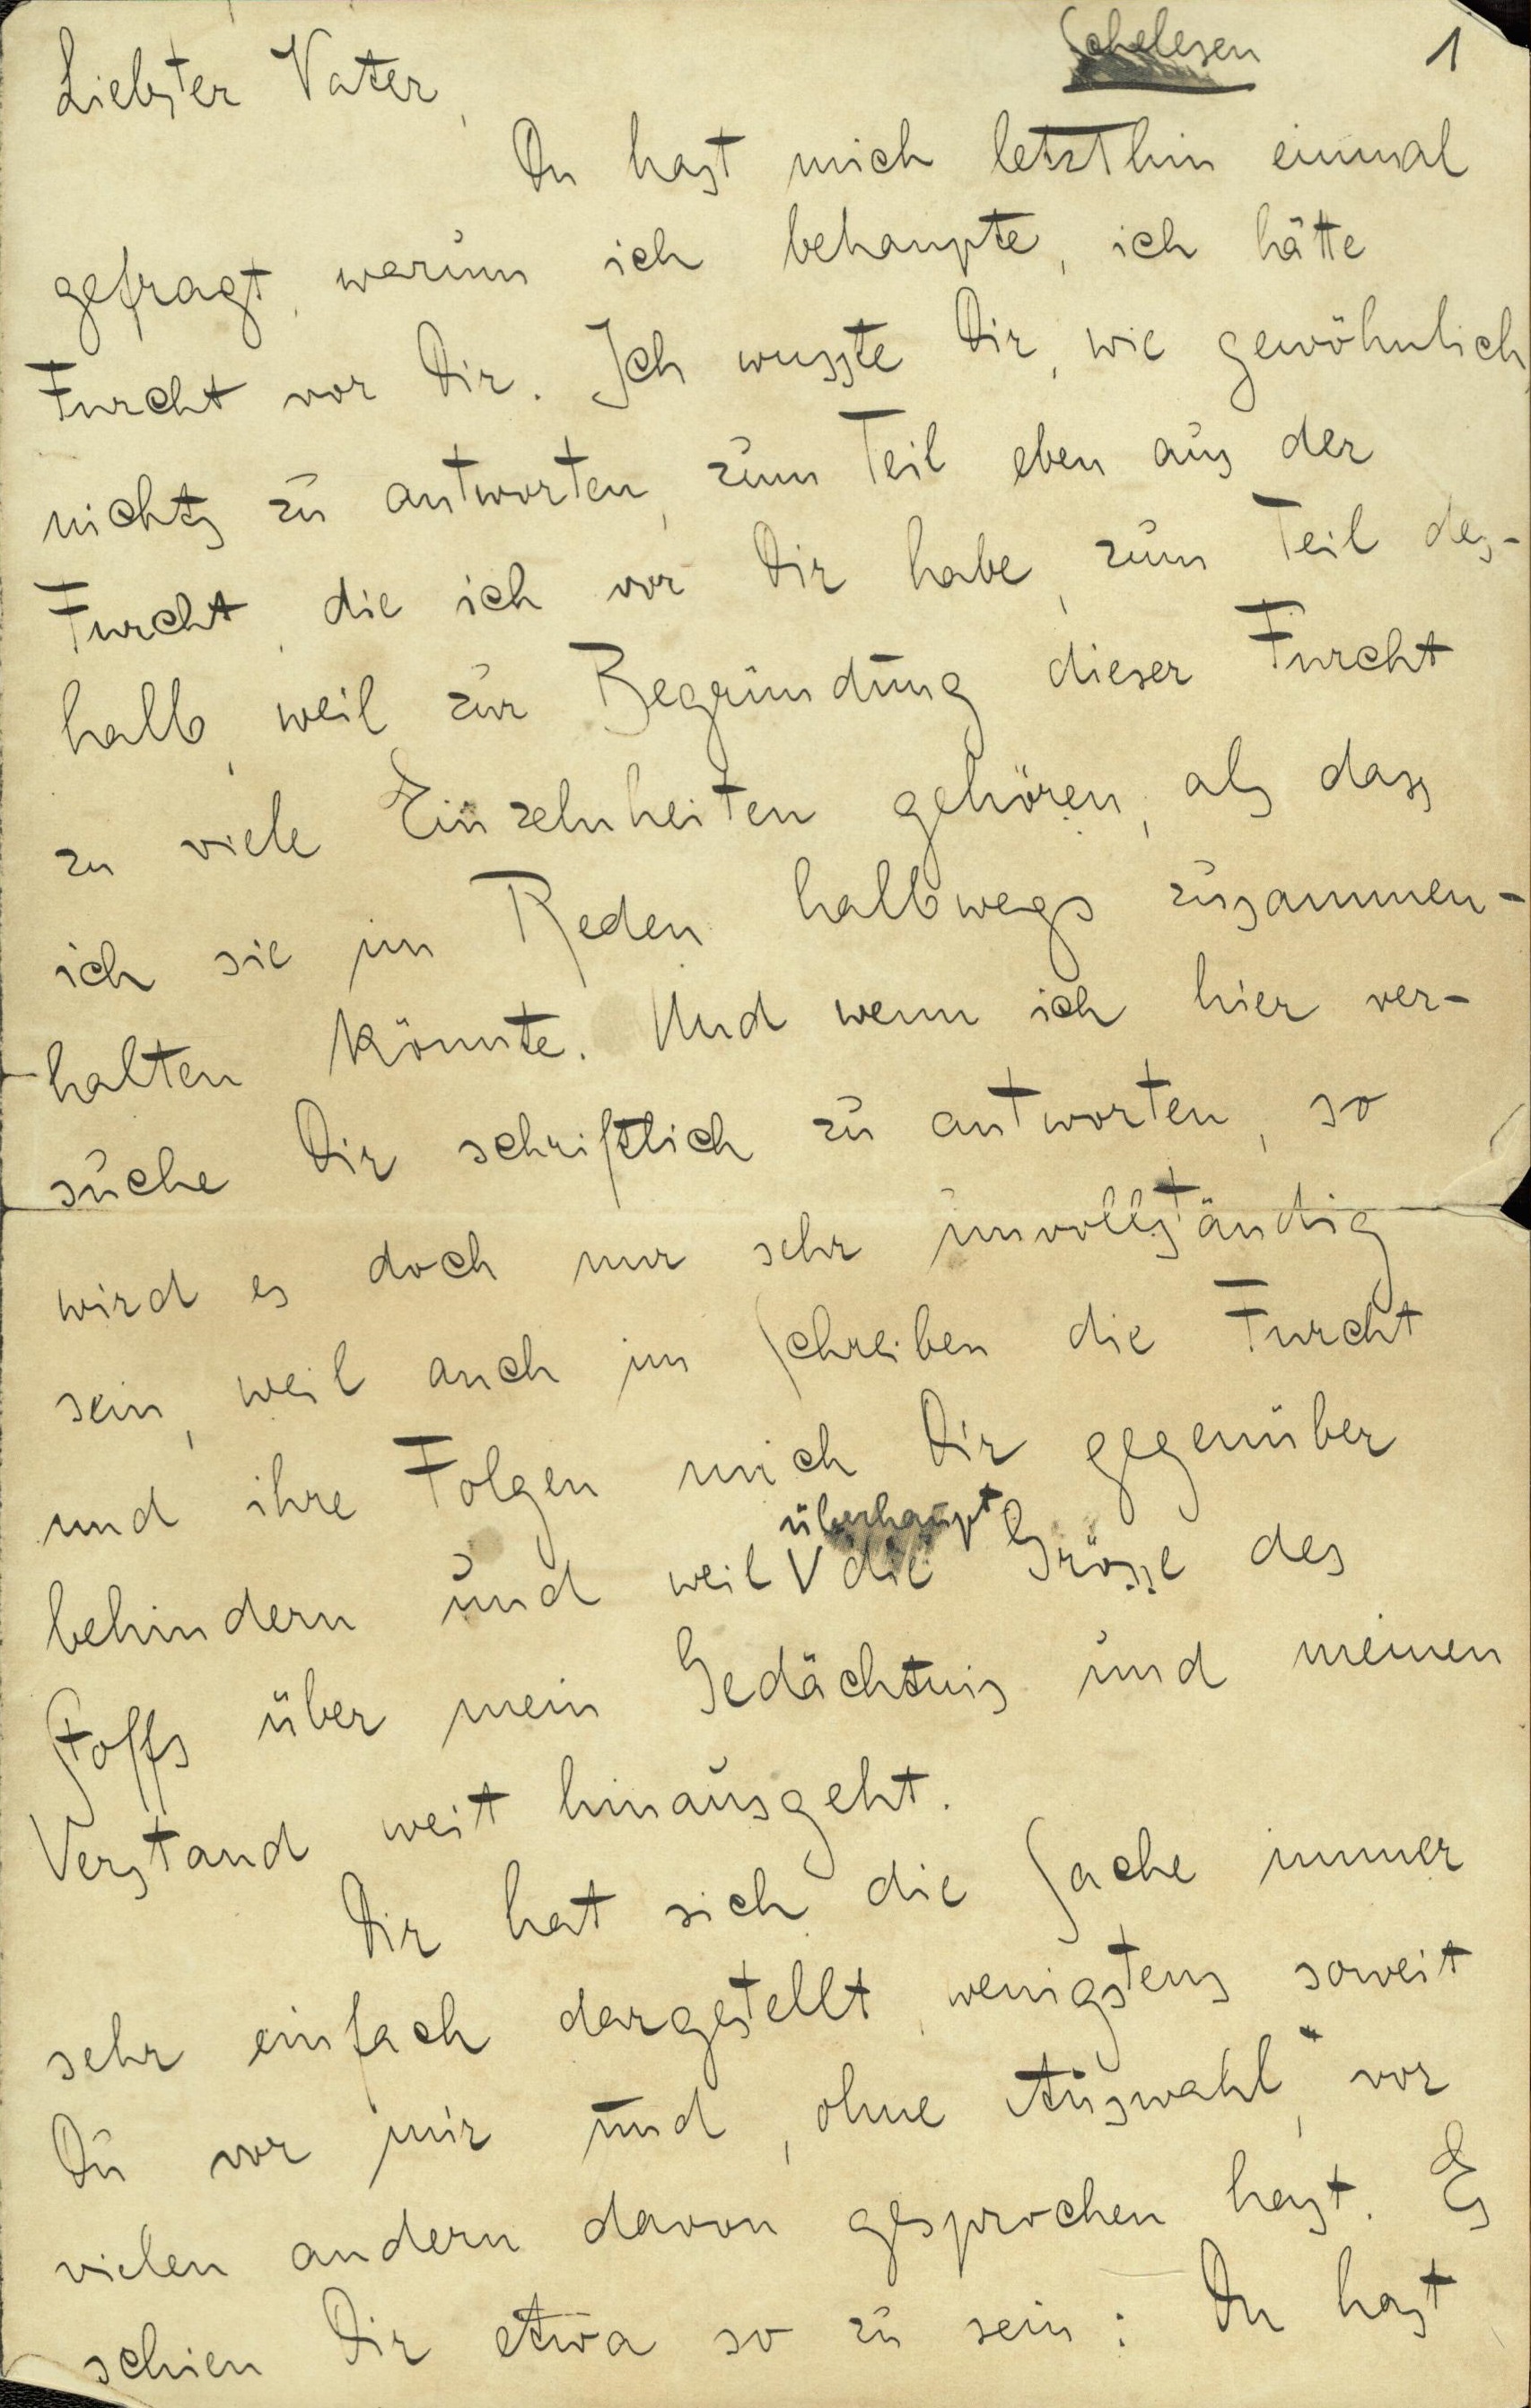 Schelesen 1
Liebster Vater,
Du hast mich letzthin einmal
gefragt, warum ich behaupte, ich hätte
Furcht vor Dir. Ich wusste Dir, wie gewöhnlich,
nichts zu antworten, zum Teil eben aus der
Furcht, die ich vor Dir habe, zum Teil des-
halb, weil zur Begründung dieser Furcht
zu viele Einzelnheiten gehören, als dass
ich sie im Reden halbwegs zusammen-
halten könnte. Und wenn ich hier ver-
suche Dir schriftlich zu antworten, so
wird es doch nur sehr unvollständig
sein, weil auch im Schreiben die Furcht
und ihre Folgen mich Dir gegenüber
überhaupt
behindern und weil die Grösse des
Stoffs über mein Gedächtnis und meinen
Verstand weit hinausgeht.
Dir hat sich die Sache immer
sehr einfach dargestellt, wenigstens soweit
Du vor mir und, ohne Auswahl, vor
vielen andern davon gesprochen hast. Es
schien Dir etwa so zu sein: Du hast